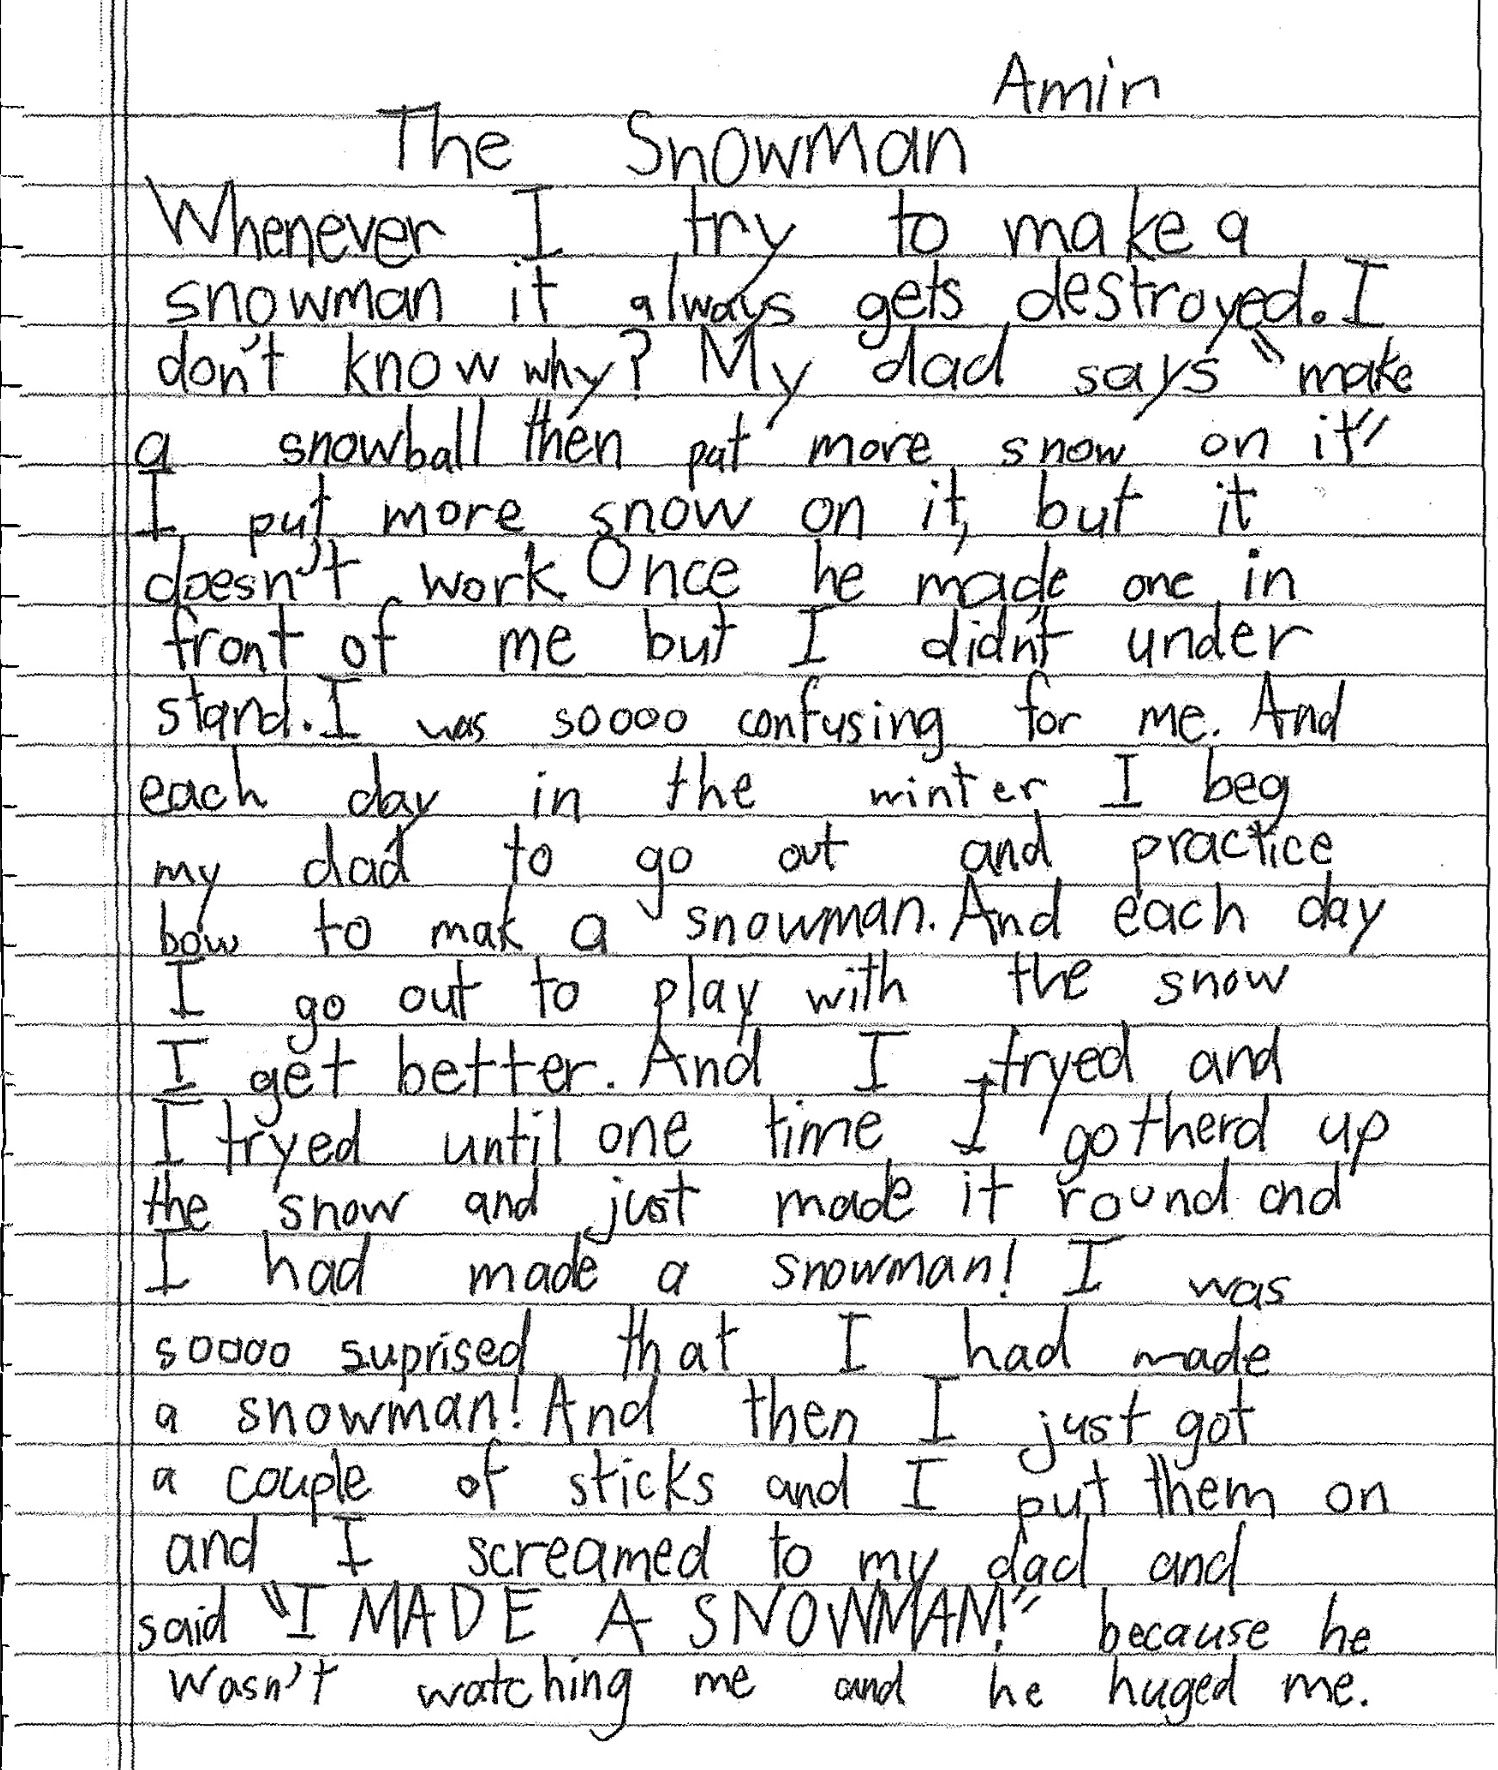 Amin
The Snowman
Whenever I try to make a
snowman it always gets destroyed. I
don't know why? My dad says "make
a snowball then put more snow on it"
I put more snow on it, but it
doesn't work. Once he made one in
front of me but I didn't under
stand. I was soooo confusing for me. And
each day in the winter I beg
my dad to go out and practice
how to mak a snowman. And each day
I go out to play with the snow
I get better. And I tryed and
I tryed until one time I gotherd up
the snow and just made it round and
I had made a snowman! I was
soooo suprised that I had made
a snowman! And then I just got
a couple of sticks and I put them on
and I screamed to my dad and
said "I MADE A SNOWMAN!" because he
wasn't watching me and he huged me.